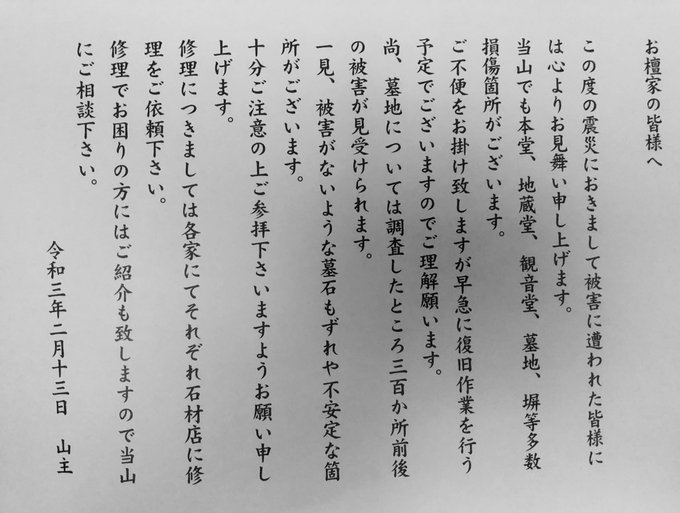 お檀家の皆様へ
この度の震災におきまして被害に遭われた皆様に
は心よりお見舞い申し上げます。
当山でも本堂、地蔵堂、観音堂、墓地、塀等多数
損傷箇所がございます。
ご不便をお掛け致しますが早急に復旧作業を行う
予定でございますのでご理解願います。
尚、墓地については調査したところ三百か所前後
の被害が見受けられます。
一見、被害がないような墓石もずれや不安定な箇
所がございます。
十分ご注意の上ご参拝下さいますようお願い申し
上げます。
修理につきましては各家にてそれぞれ石材店に修
理をご依頼下さい。
修理でお困りの方にはご紹介も致しますので当山
にご相談下さい。
令和三年二月十三日 山主